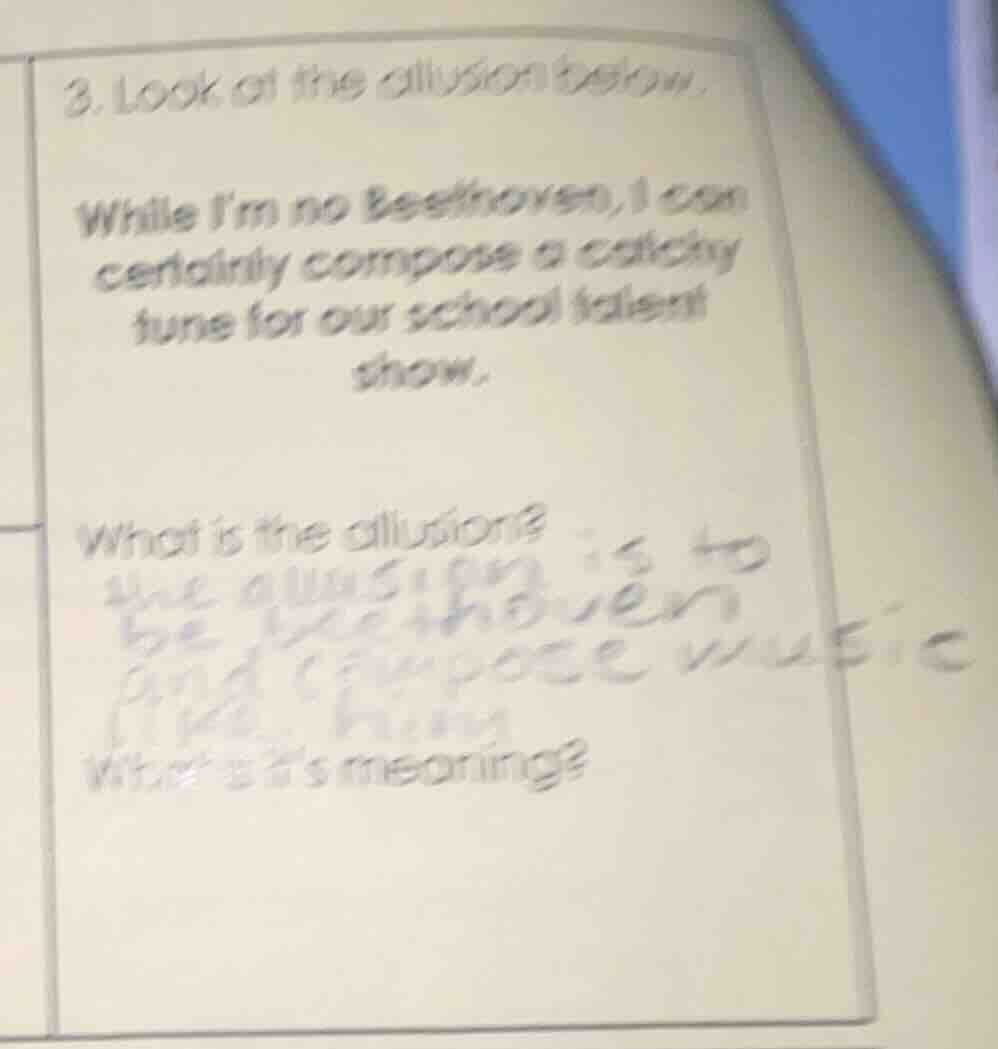 3. Look at the allusion below.
While I'm no Beethoven, I can
certainly compose a catchy
tune for our school talent
show.
What is the allusion?
the allusion is to
be beethoven
and compose music
like him
What is it's meaning?